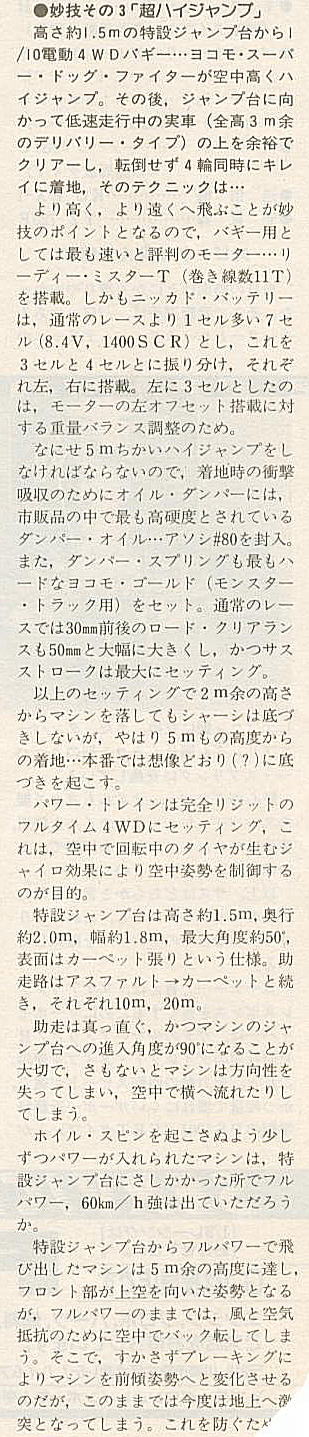 ●妙技その3「超ハイジャンプ」
高さ約1.5mの特設ジャンプ台から1
/10電動4WDバギー…ヨコモ・スーパ
ー・ドッグ・ファイターが空中高くハ
イジャンプ。その後，ジャンプ台に向
かって低速走行中の実車（全高3m余
のデリバリー・タイプ）の上を余裕で
クリアーし，転倒せず4輪同時にキレ
イに着地，そのテクニックは…
より高く，より遠くへ飛ぶことが妙
技のポイントとなるので，バギー用と
しては最も速いと評判のモーター…リ
ーディー・ミスターT（巻き線数11T）
を搭載。しかもニッカド・バッテリー
は，通常のレースより1セル多い7セ
ル(8.4V，1400SCR)とし，これを
3セルと4セルとに振り分け，それぞ
れ左，右に搭載。左に3セルとしたの
は，モーターの左オフセット搭載に対
する重量バランス調整のため。
なにせ5mちかいハイジャンプをし
なければならないので，着地時の衝撃
吸収のためにオイル・ダンパーには，
市販品の中で最も高硬度とされている
ダンパー・オイル…アソシ#80を封入。
また，ダンパー・スプリングも最もハ
ードなヨコモ・ゴールド（モンスター
・トラック用）をセット。通常のレー
スでは30mm前後のロード・クリアラン
スも50mmと大幅に大きくし，かつサス
ストロークは最大にセッティング。
以上のセッティングで2m余の高さ
からマシンを落してもシャーシは底づ
きしないが，やはり5mもの高度から
の着地…本番では想像どおり(？)に底
づきを起こす。
パワー・トレインは完全リジットの
フルタイム4WDにセッティング，こ
れは，空中で回転中のタイヤが生むジ
ャイロ効果により空中姿勢を制御する
のが目的。
特設ジャンプ台は高さ約1.5m,奥行
約2.0m，幅約1.8m，最大角度約50°，
表面はカーペット張りという仕様。助
走路はアスファルト→カーペットと続
き，それぞれ10m，20m。
助走は真っ直ぐ，かつマシンのジャ
ンプ台への進入角度が90°になることが
大切で，さもないとマシンは方向性を
失ってしまい，空中で横へ流れたりし
てしまう。
ホイル・スピンを起こさぬよう少し
ずつパワーが入れられたマシンは，特
設ジャンプ台にさしかかった所でフル
パワー，60km／h強は出ていただろう
か。
特設ジャンプ台からフルパワーで飛
び出したマシンは5m余の高度に達し，
フロント部が上空を向いた姿勢となる
が，フルパワーのままでは，風と空気
抵抗のために空中でバック転してしま
う。そこで，すかさずブレーキングに
よりマシンを前傾姿勢へと変化させる
のだが，このままでは今度は地上へ激
突となってしまう。これを防ぐため